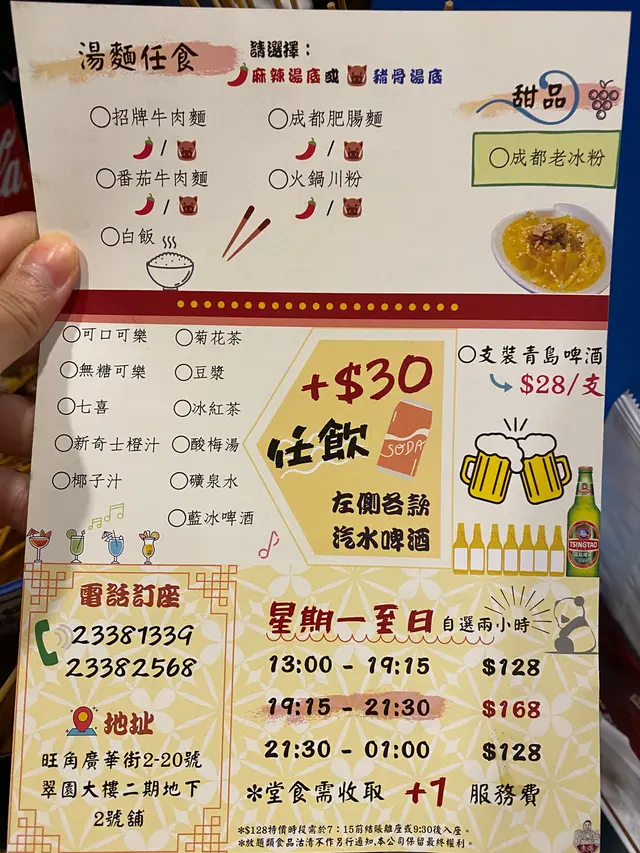 湯麵任食
請選擇：
麻辣湯底或 豬骨湯底
甜品
招牌牛肉麵
成都肥腸麵
/
/
番茄牛肉麵
火鍋川粉
/
/
白飯
成都老冰粉
可口可樂
菊花茶
無糖可樂
豆漿
七喜
冰紅茶
新奇士橙汁
酸梅湯
椰子汁
礦泉水
藍冰啤酒
+$30
任飲
SODA
左側各款
汽水啤酒
支裝青島啤酒
$28/支
TSINGTAO
電話訂座
23381339
23382568
地址
旺角廣華街2-20號
翠園大樓二期地下
2號舖
星期一至日 自選兩小時
13:00 - 19:15 $128
19:15 - 21:30 $168
21:30 - 01:00 $128
*堂食需收取 +1 服務費
*$128特價時段需於7：15前結賬離座或9:30後入座。
*放題類食品沽清不作另行通知,本公司保留最終權利。